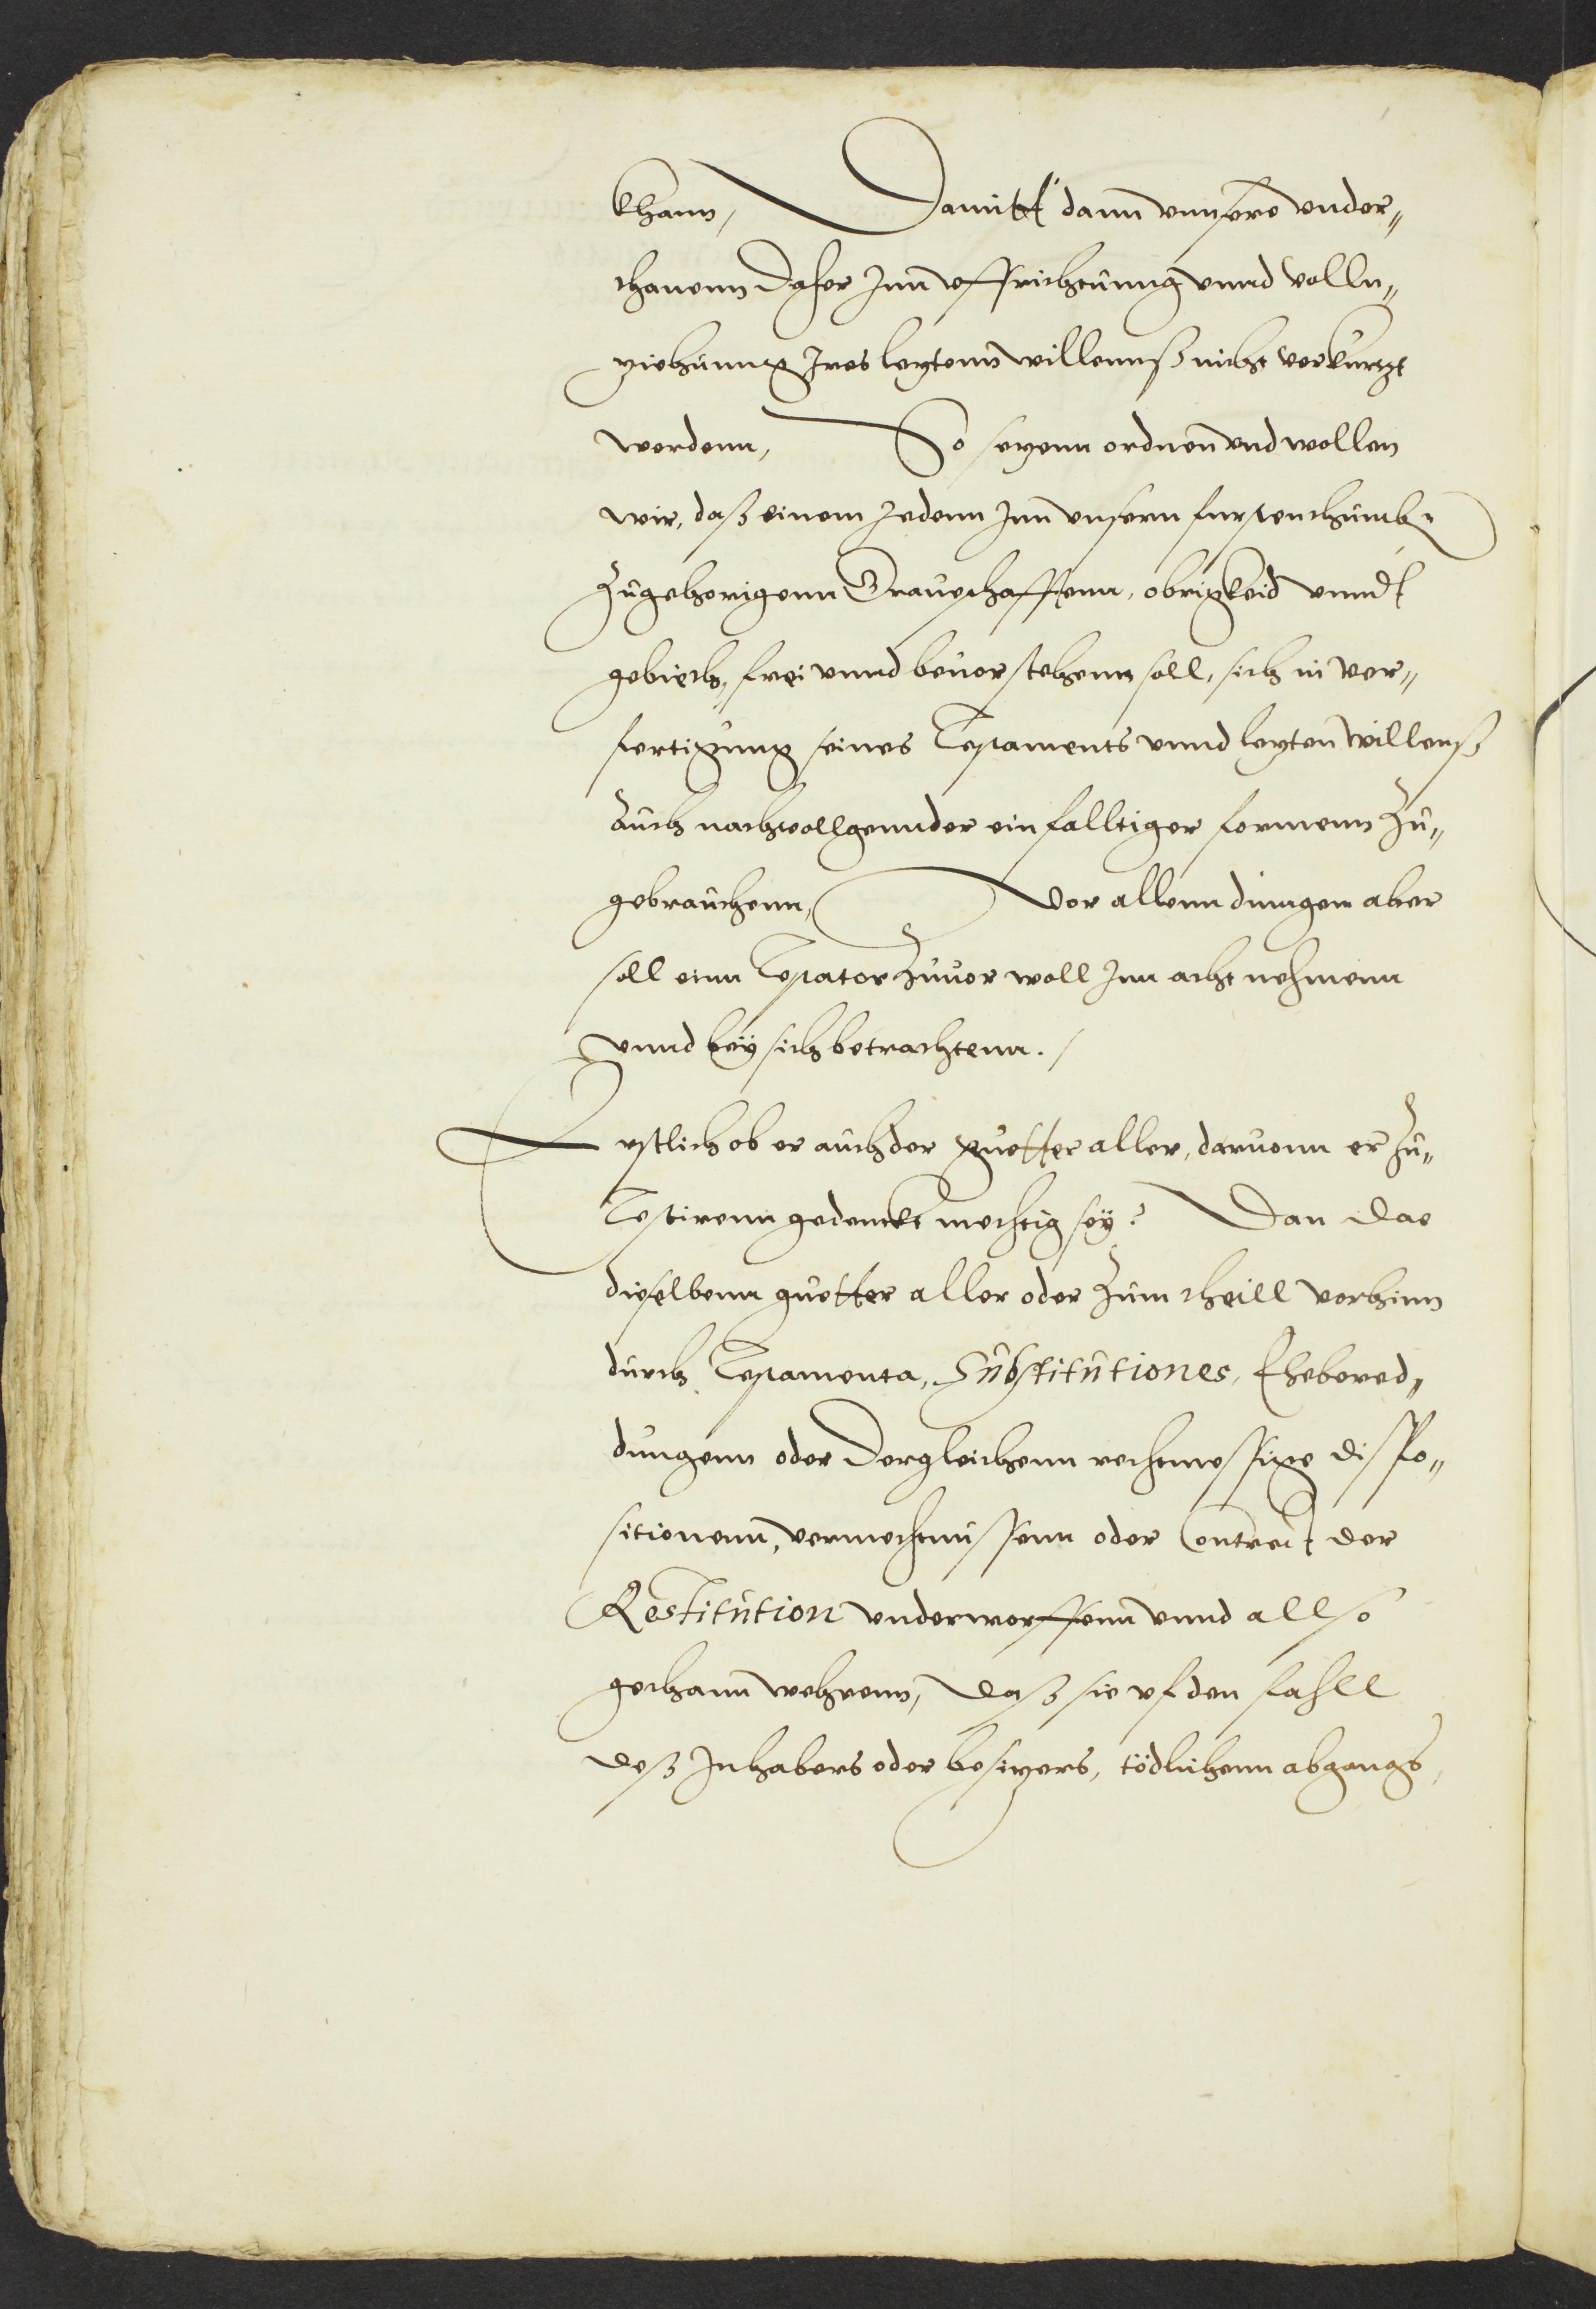 khann, Damitt dann vnnsere vnder„
thanenn daher Inn vffrichtunng vnnd volln„
ziehunng Ires letztenn willennß nicht verkurtzt
werdenn, So setzenn ordnenn vnd wollen
wir, daß einem Jedenn Inn vnsern furstenthumb
zugehorigenn Graueschafftenn, obrigkeid vnndt
gebieth, frei vnnd beuor stehenn soll, sich in ver„
fertigung seines Testaments vnnd letzten willenß
Auch nachvollgennder einfalltiger formenn zu„
gebrauchenn, Vor allenn dinngen aber
soll einn Testator zuuor woll Inn acht nehmenn
vnnd bey sich betrachtenn.
Erstlich ob er auch der guetter aller, daruonn er zu„
Testirenn gedenckt mechtig sey? Dan das
dieselbenn guetter aller oder zum theill vorhinn
durch Testamenta, Substitutiones, Ehebered„
dungenn oder dergleichenn rechtmessige dispo„
sitionenn, vermechtnissenn oder Contract der
Restitution vnderworffenn vnnd allso
gethann wehrenn, daß sie vf den fahll
deß Inhabers oder besitzers, tödlichenn abgangs,